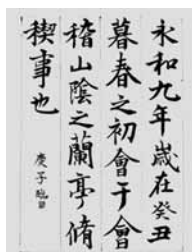 永和九年歲在癸丑
暮春之初會于會
稽山陰之蘭亭脩
稧事也
庚子臨